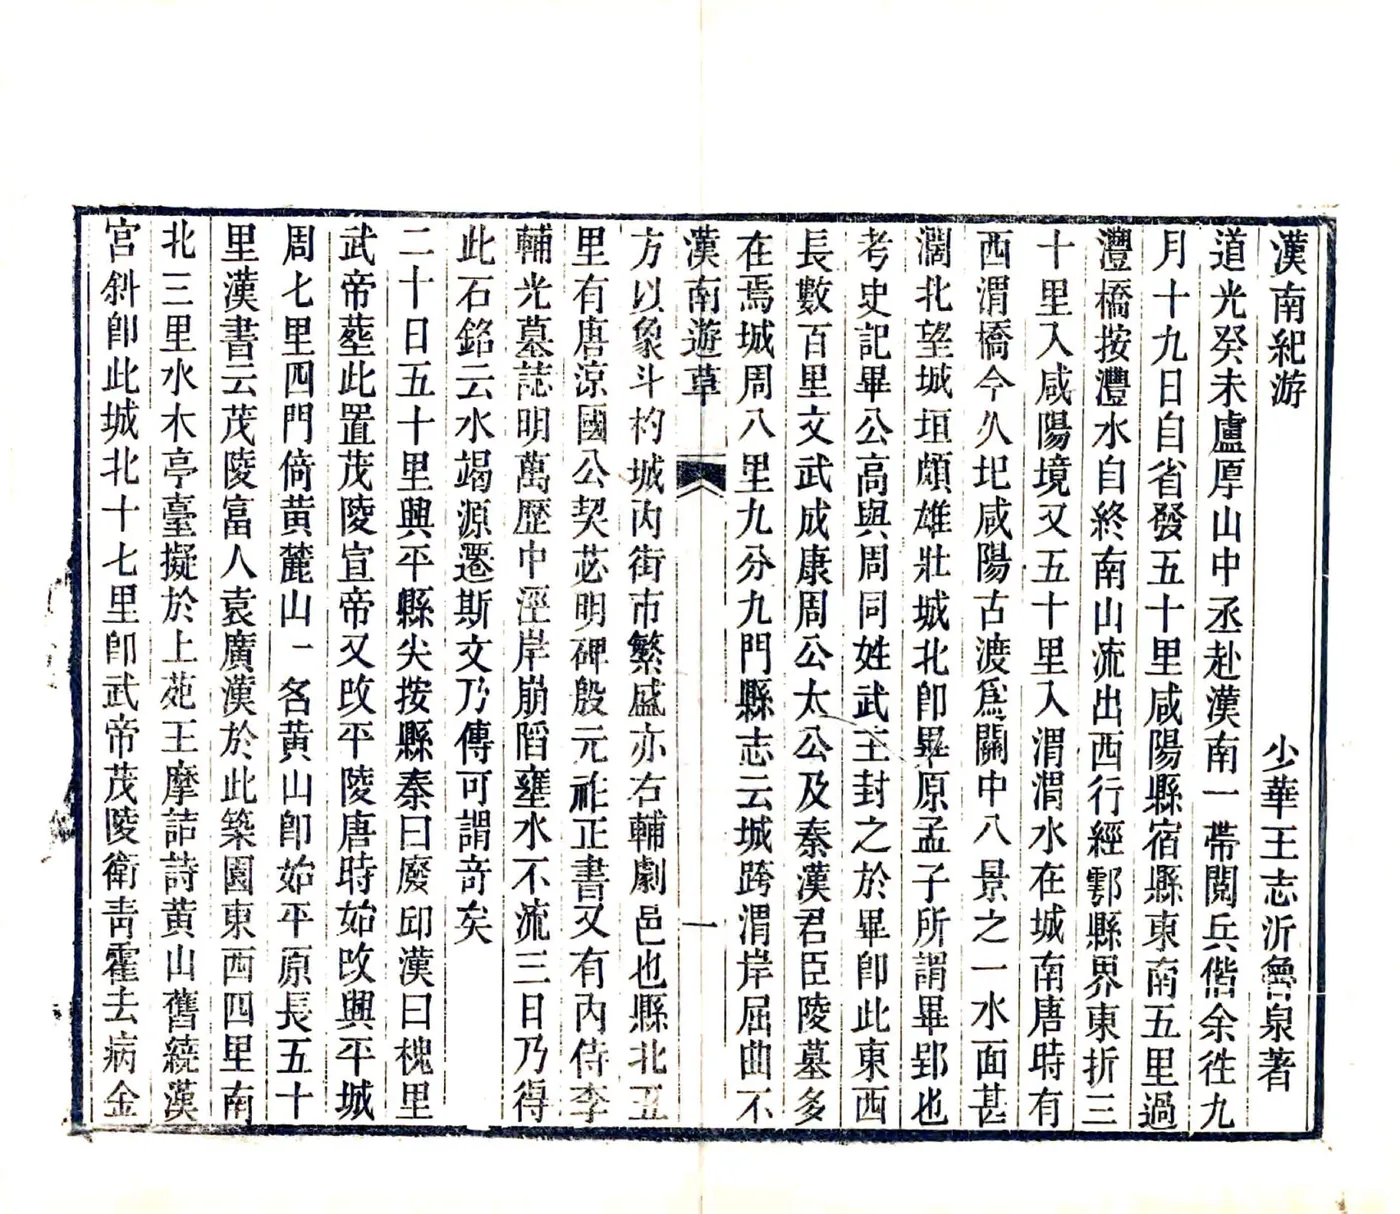 漢南紀游
少華王志沂魯泉著
道光癸未盧厚山中丞赴漢南一帶閱兵偕余徃九
月十九日自省發五十里咸陽縣宿縣東南五里過
灃橋按灃水自終南山流出西行經鄠縣界東折三
十里入咸陽境又五十里入渭渭水在城南唐時有
西渭橋今久圯咸陽古渡爲關中八景之一水面甚
濶北望城垣頗雄壯城北卽畢原孟子所謂畢郢也
考史記畢公高與周同姓武王封之於畢卽此東西
長數百里文武成康周公太公及秦漢君臣陵墓多
在焉城周八里九分九門縣志云城跨渭岸屈曲不
漢南遊草
一
方以象斗杓城內街市繁盛亦右輔劇邑也縣北五
里有唐涼國公契苾明碑殷元祚正書又有內侍李
輔光墓誌明萬歷中涇岸崩陷壅水不流三日乃得
此石銘云水竭源遷斯文乃傳可謂奇矣
二十日五十里興平縣尖按縣秦曰廢邱漢曰槐里
武帝塟此置茂陵宣帝又改平陵唐時始改興平城
周七里四門倚黃麓山一名黃山卽始平原長五十
里漢書云茂陵富人袁廣漢於此築園東西四里南
北三里水木亭臺擬於上苑王摩詰詩黃山舊繞漢
宮斜卽此城北十七里卽武帝茂陵衛靑霍去病金